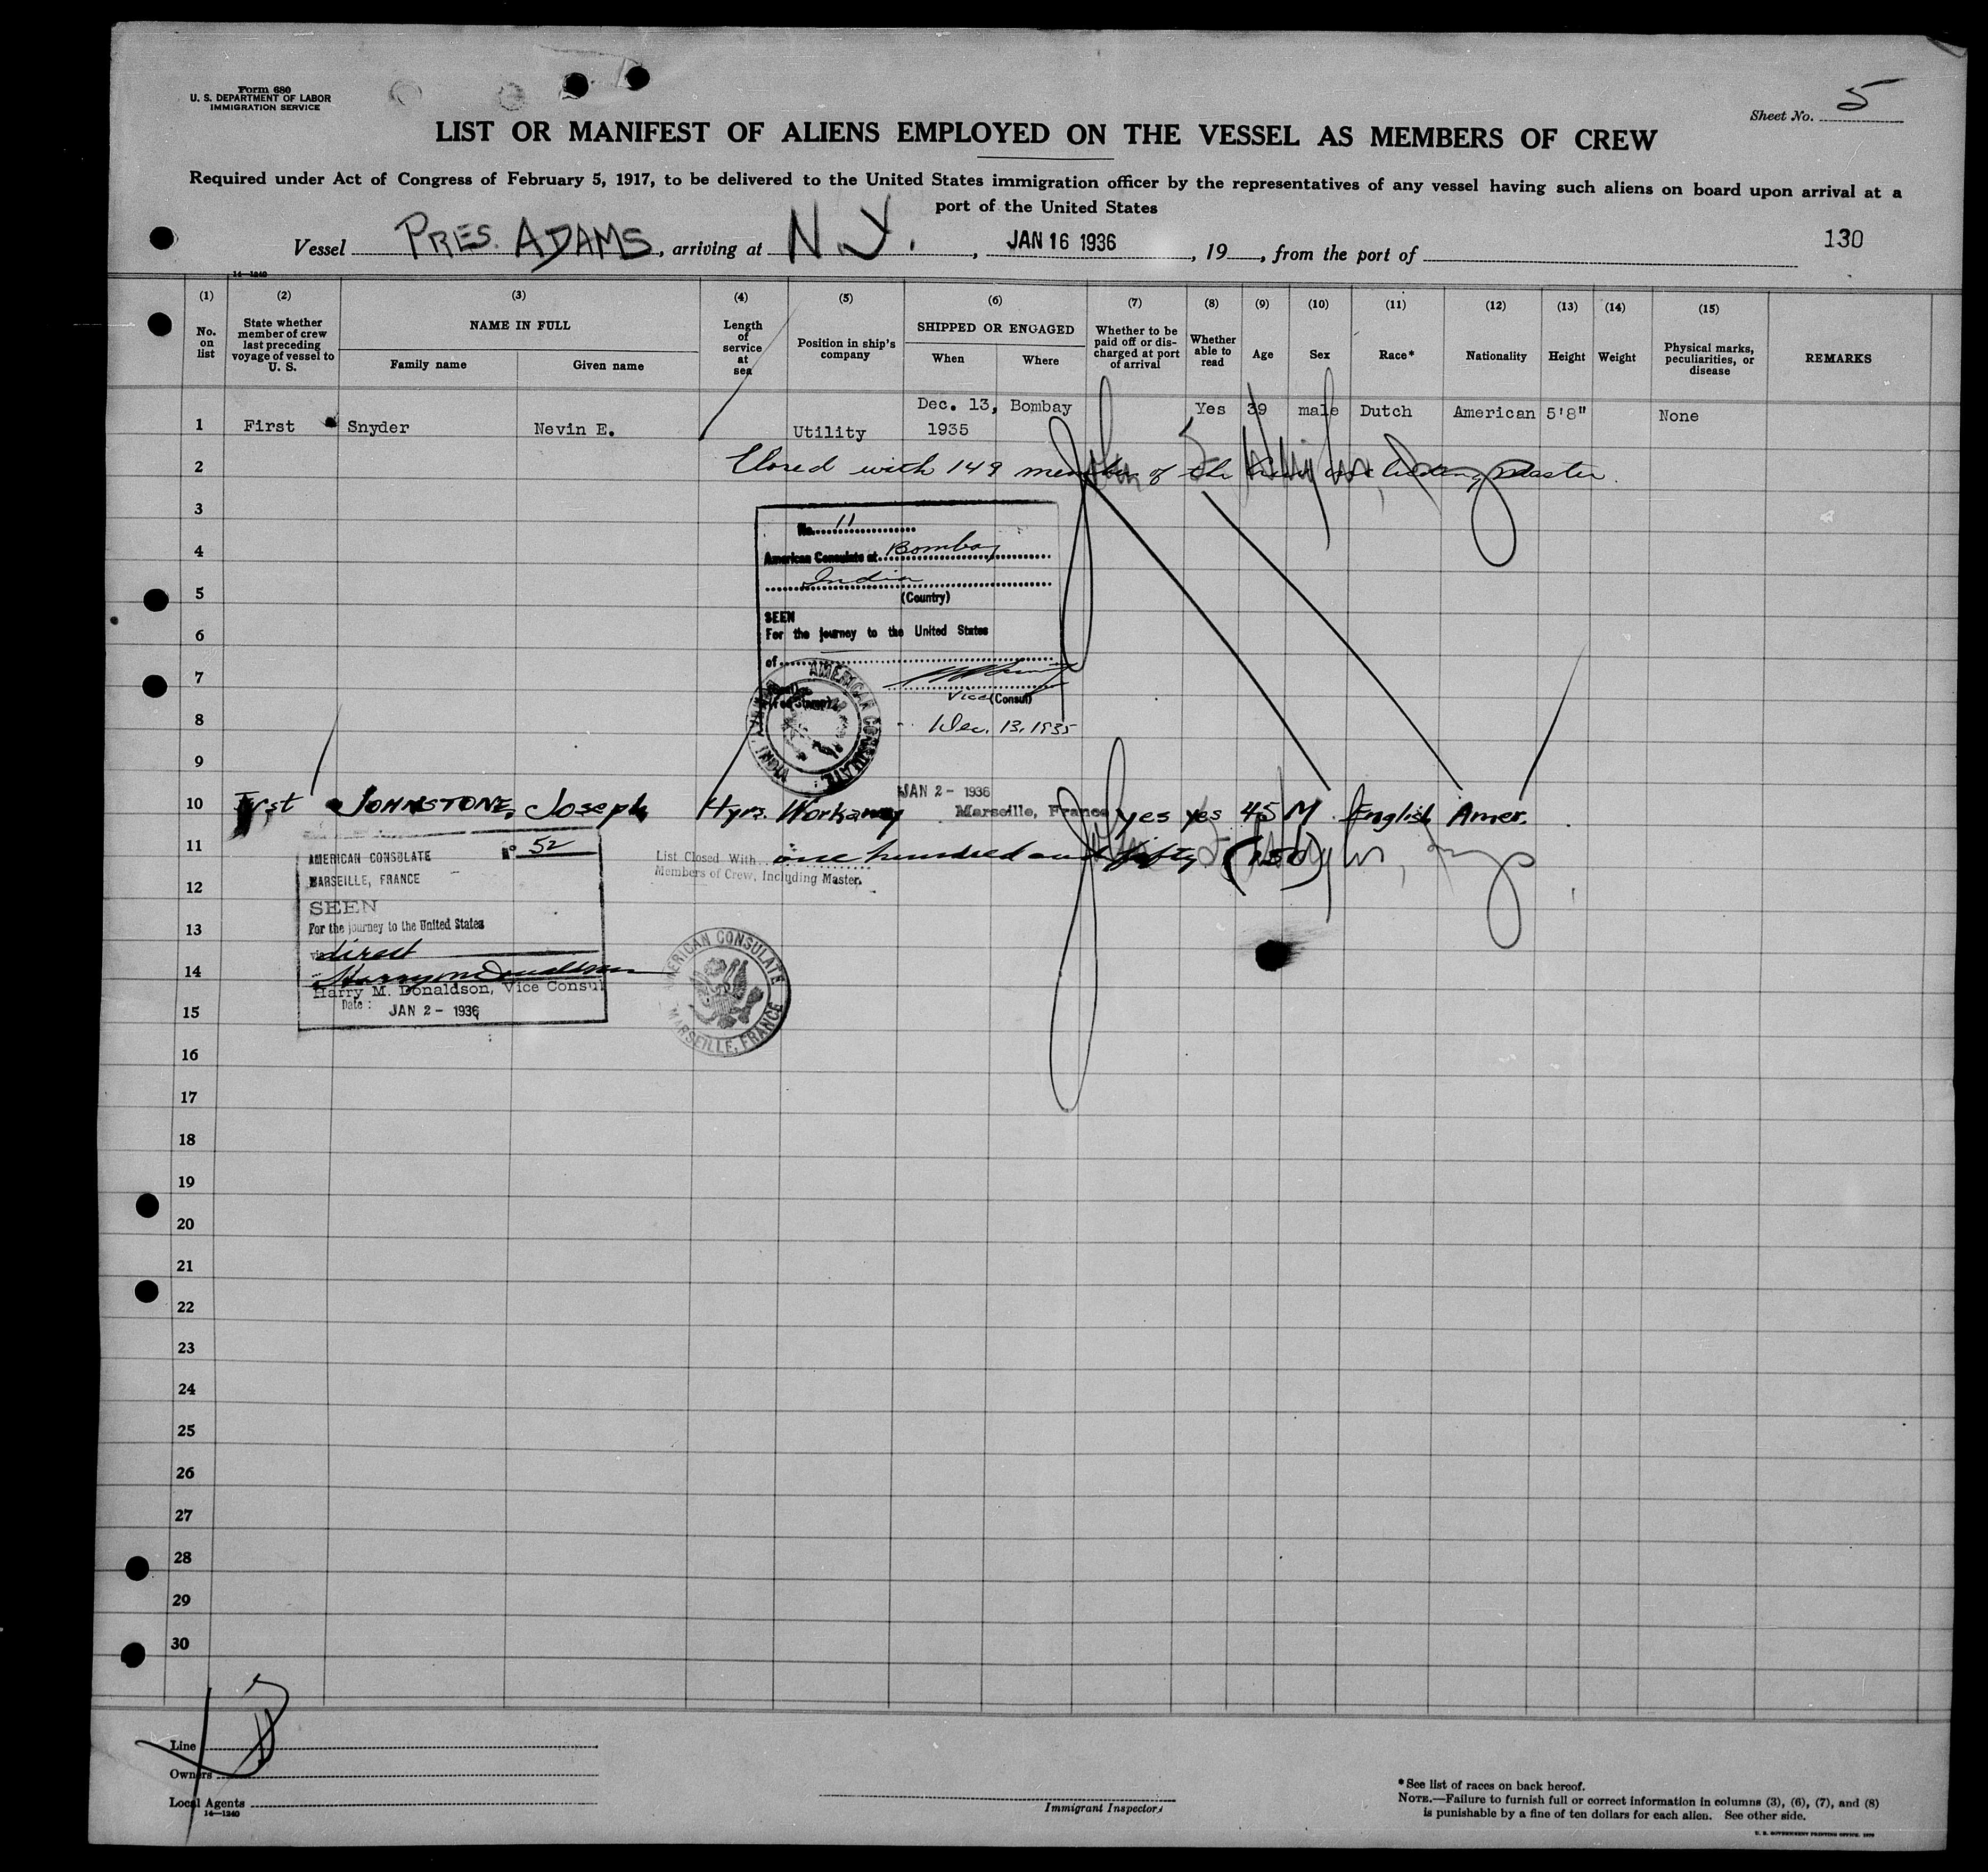 Form 680
U. S. DEPARTMENT OF LABOR
IMMIGRATION SERVICE
Sheet No. 5
LIST OR MANIFEST OF ALIENS EMPLOYED ON THE VESSEL AS MEMBERS OF CREW
Required under Act of Congress of February 5, 1917, to be delivered to the United States immigration officer by the representatives of any vessel having such aliens on board upon arrival at a
port of the United States
Vessel PRES. ADAMS, arriving at N.Y., JAN 16 1936, 19, from the port of
130
14-1240
(1) (2) (3) (4) (5) (6) (7) (8) (9) (10) (11) (12) (13) (14) (15)
No. on list
State whether member of crew last preceding voyage of vessel to U. S.
NAME IN FULL
Family name
Given name
Length of service at sea
Position in ship's company
SHIPPED OR ENGAGED
When
Where
Whether to be paid off or discharged at port of arrival
Whether able to read
Age
Sex
Race*
Nationality
Height
Weight
Physical marks, peculiarities, or disease
REMARKS
1 First Snyder Nevin E. Utility Dec. 13, 1935 Bombay Yes 39 male Dutch American 5'8" None
2 Closed with 149 members of the crew including master.
3
No. 11
4
American Consulate at Bombay
India
5
(Country)
SEEN
6
For the journey to the United States
of
7
Vice (Consul)
8
Dec. 13, 1935
AMERICAN CONSULATE
9
JAN 2 - 1936
10 First JOHNSTONE, Joseph 4 yrs. Workaway Marseille, France yes yes 45 M English Amer.
11
List Closed With one hundred and fifty (150)
Members of Crew, Including Master.
AMERICAN CONSULATE
Nº 52
MARSEILLE, FRANCE
12
SEEN
13
For the journey to the United States
direct
14
Harry M. Donaldson
Harry M. Donaldson, Vice Consul
Date : JAN 2 - 1936
AMERICAN CONSULATE
MARSEILLE, FRANCE
15
16
17
18
19
20
21
22
23
24
25
26
27
28
29
30
Line
Owners
Local Agents
14-1240
Immigrant Inspector
*See list of races on back hereof.
NOTE.—Failure to furnish full or correct information in columns (3), (6), (7), and (8)
is punishable by a fine of ten dollars for each alien. See other side.